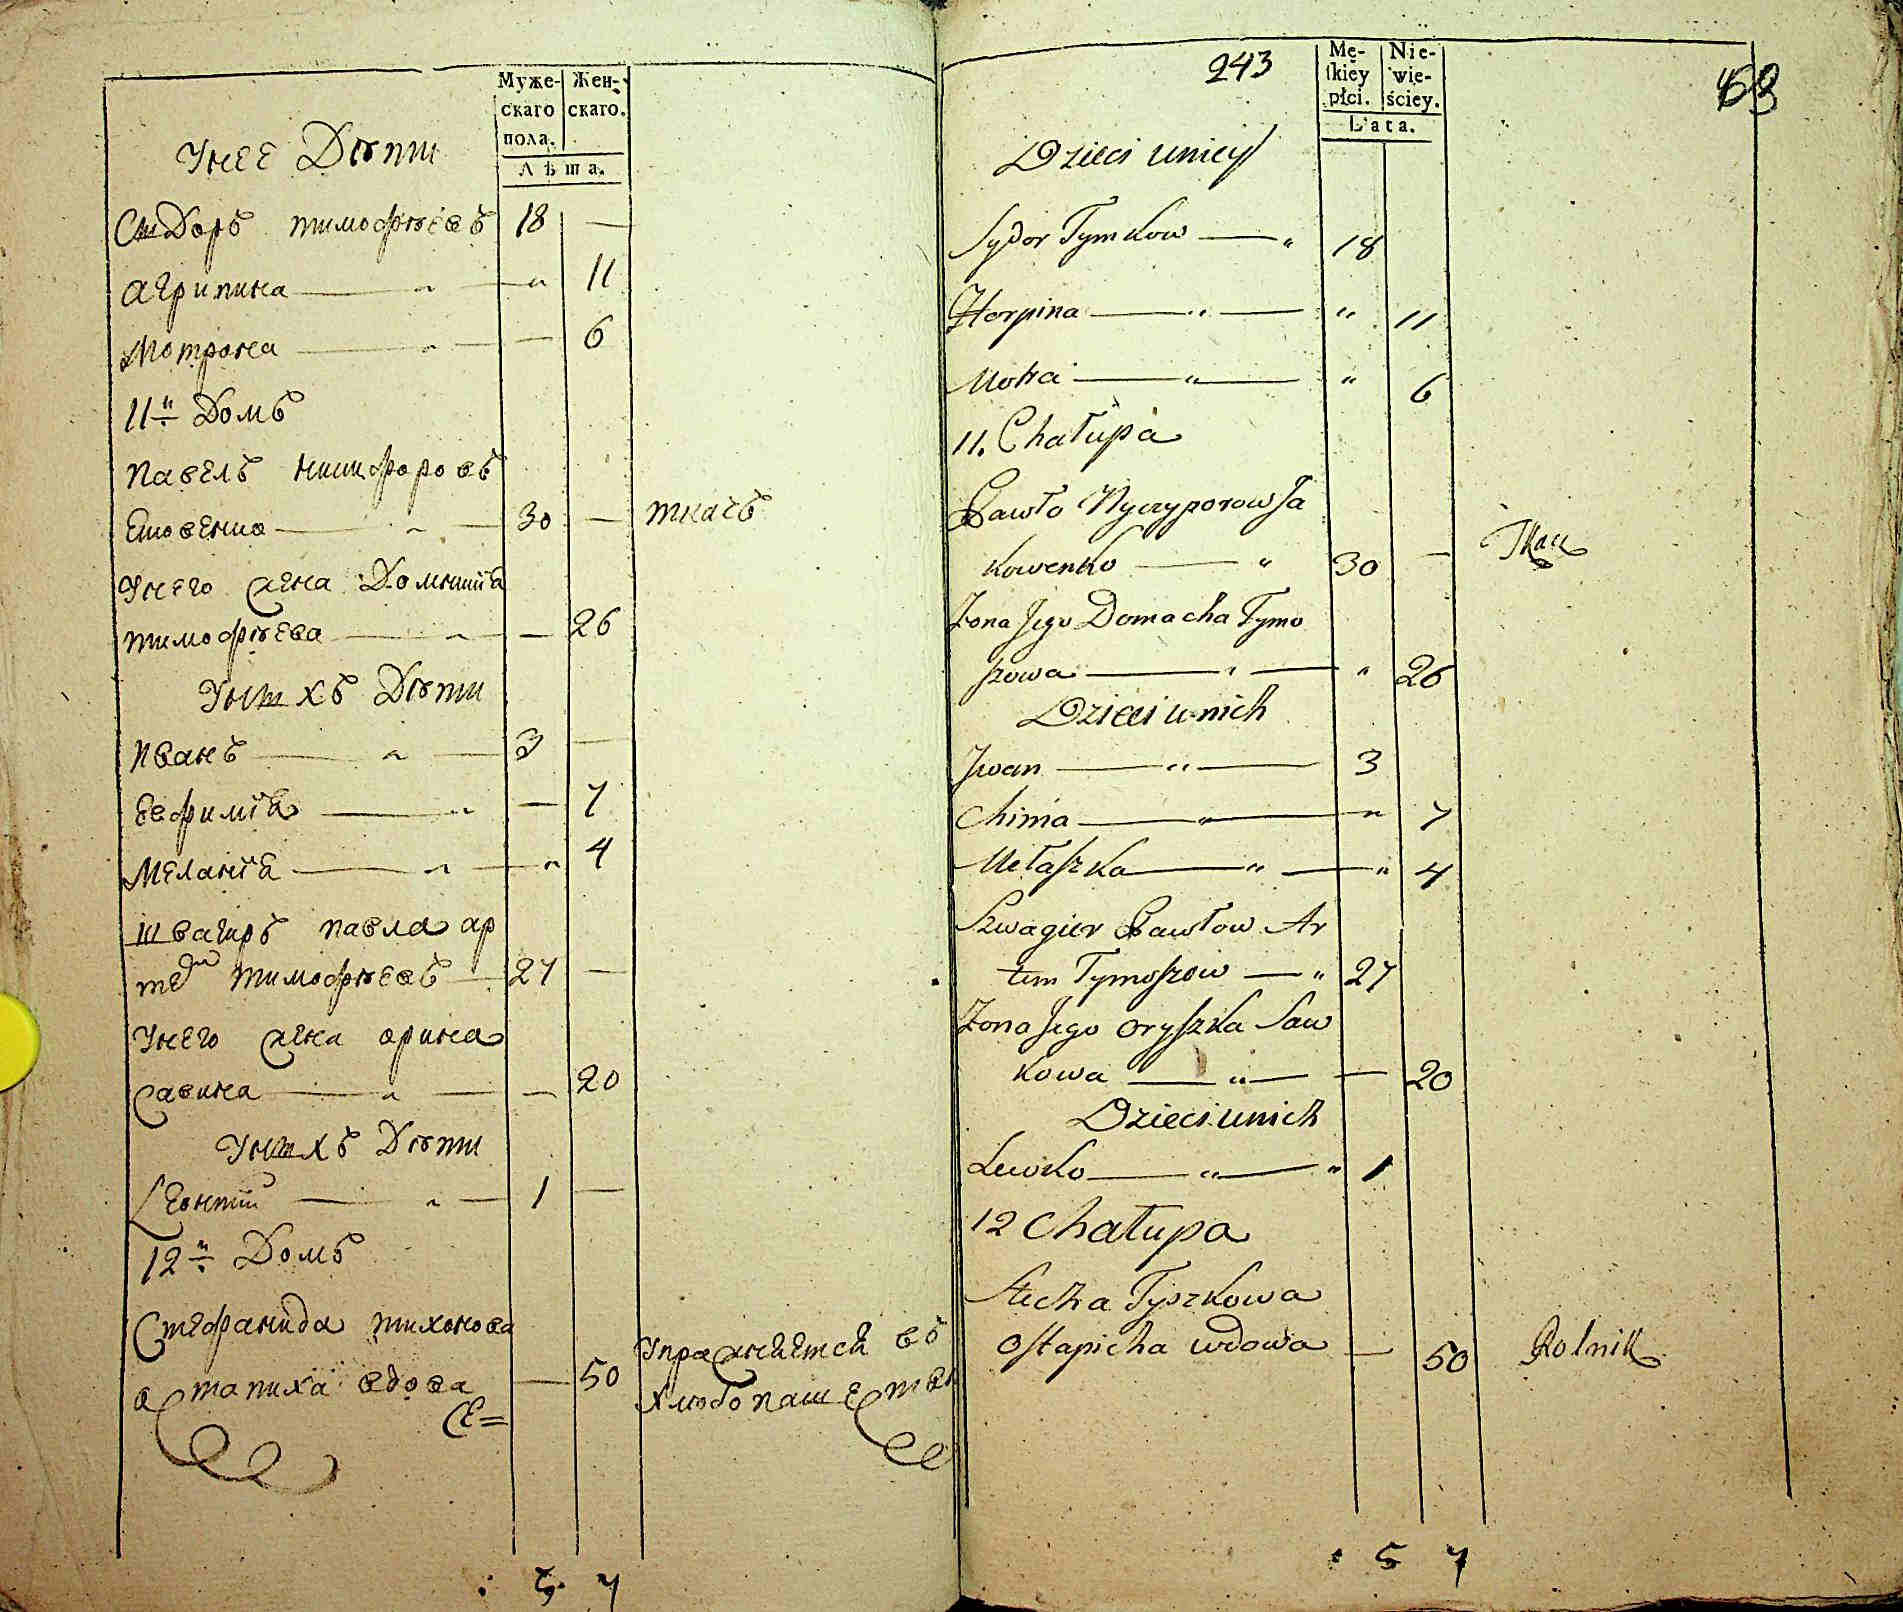 Муже-
скаго
пола.
Жен-
скаго.
Лѣта.
Унее Дѣти
Сидоръ тимофѣевъ 18 —
агрипина — „ — „ 11
Мотрона — „ — — 6
11й Домъ
павелъ никифоровъ
— „ — 30 — ткачъ
Унего жена Домникїа
тимофѣева — „ — 26
Унихъ Дѣти
иванъ — „ — 3 —
Еефимїа — „ — 7
Меланїа — „ — „ 4
швагиръ павла ар
теⷨ тимофѣевъ — 27 —
Унего жена орина
савина — „ — — 20
Унихъ Дѣти
Леонтїй — „ — 1 —
12й Домъ
Стефанида тихонова
остапиха вдова — 50
Упражняется въ
хлѣбопашестве
се=
5 7
243
63
Mę-
skiey
płci.
Nie-
wie-
ściey.
Lata.
Dzieci uniey
Sydor Tymkow — „ 18
Horpina — „ — „ 11
Motra — „ — „ 6
11. Chałupa
Pawło Nyczyporow Ja
kowenko — „ 30 — Tkacz
Żona Jego Domacha Tymo
szowa — „ — „ 26
Dzieci unich
Jwan — „ — 3
Chima — „ — „ 7
Mełaszka — „ — „ 4
Szwagier Pawłow Ar
tem Tymoszow — „ 27
Żona Jego Oryszka Saw
kowa — „ — — 20
Dzieci unich
Lewko — „ — „ 1
12 Chałupa
Stecha Tyszkowa
Ostapicha wdowa — 50 Rolnik
5 7